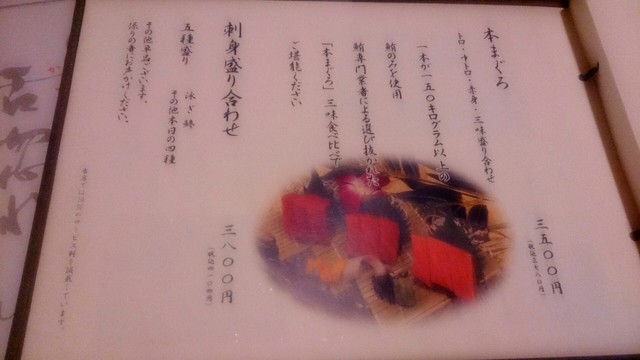 本まぐろ
トロ・中トロ・赤身・三味盛り合わせ
一本が一五〇キログラム以上の
鮪のみを使用
鮪専門業者による選び抜かれた
「本まぐろ」三味食べ比べ
ご堪能ください
三五〇〇円
(税込三七八〇円)
刺身盛り合わせ
五種盛り
泳ぎ鯵
その他本日の四種
その他単品ございます。
係りの者にお声がけください。
三八〇〇円
(税込四一〇四円)